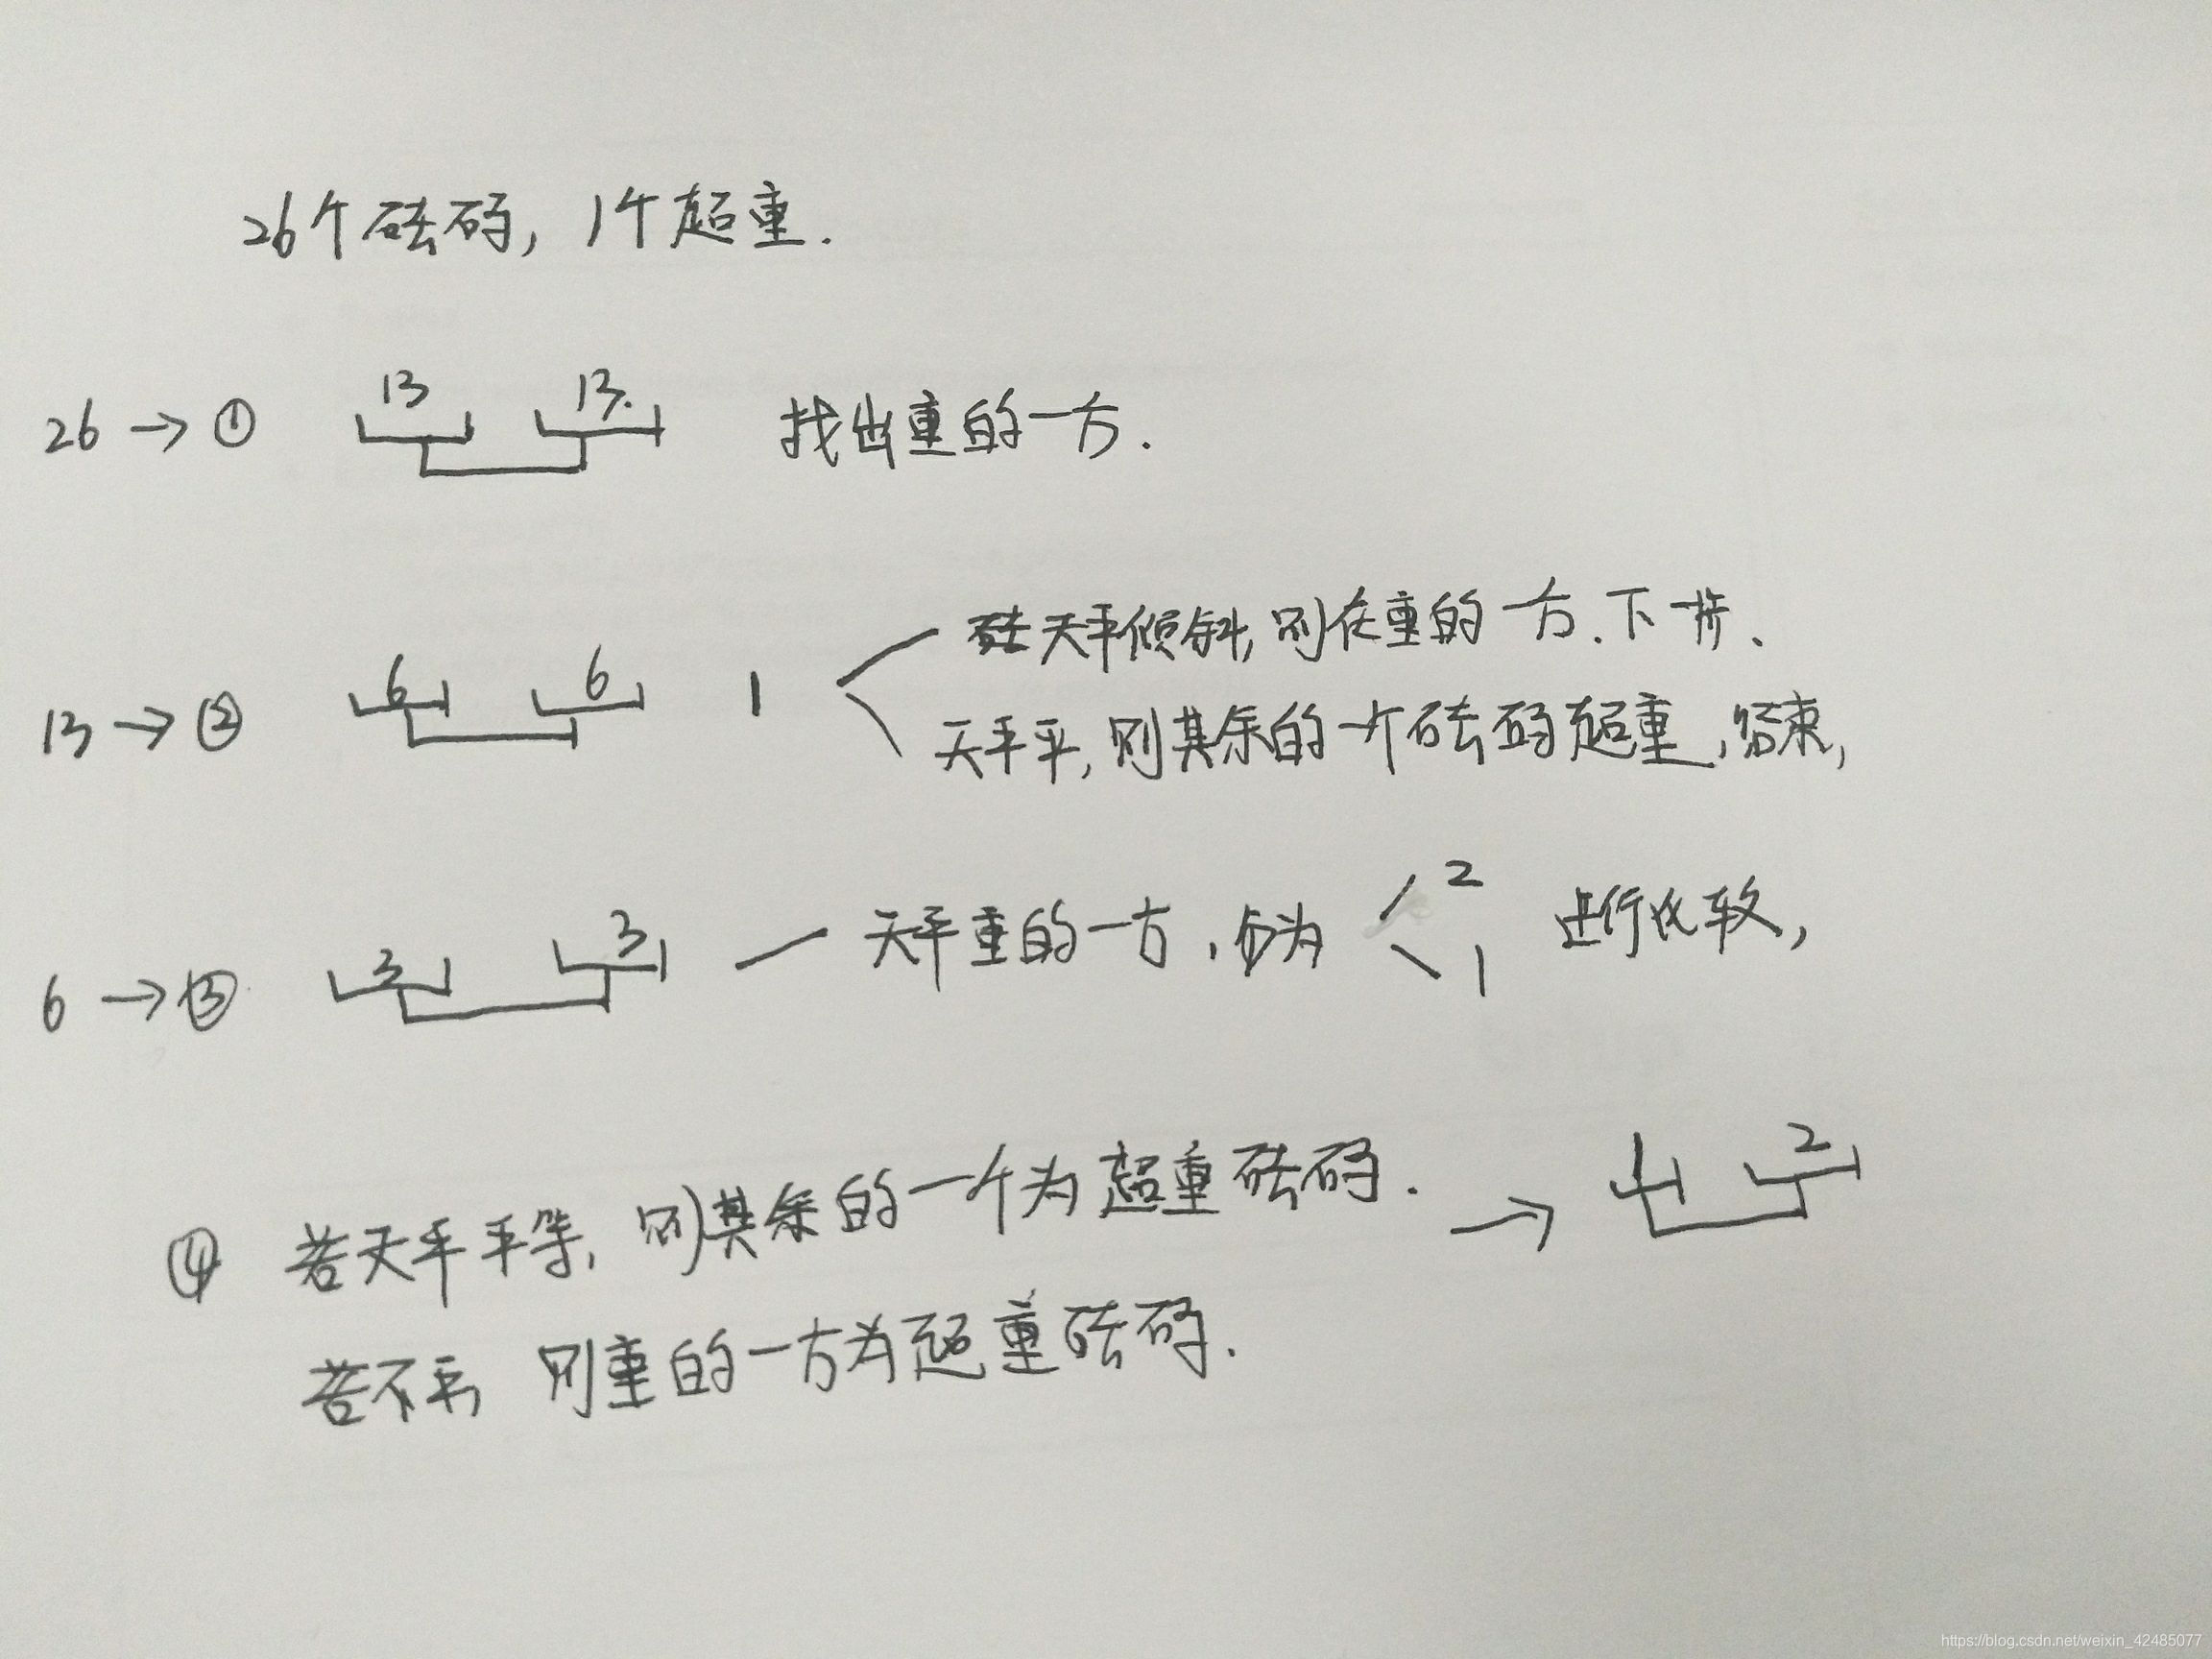 26个砝码，1个超重.
13 13.
26 → ① 找出重的一方.
天平倾斜，则在重的一方.下一步、
6 6 1
13 → ②
天平平，则其余的一个砝码超重，结束，
2
3 3 天平重的一方，分为 进行比较，
6 → ③ 1
④ 若天平平等，则其余的一个为超重砝码. → 1 2
若不平，则重的一方为超重砝码.
https://blog.csdn.net/weixin_42485077